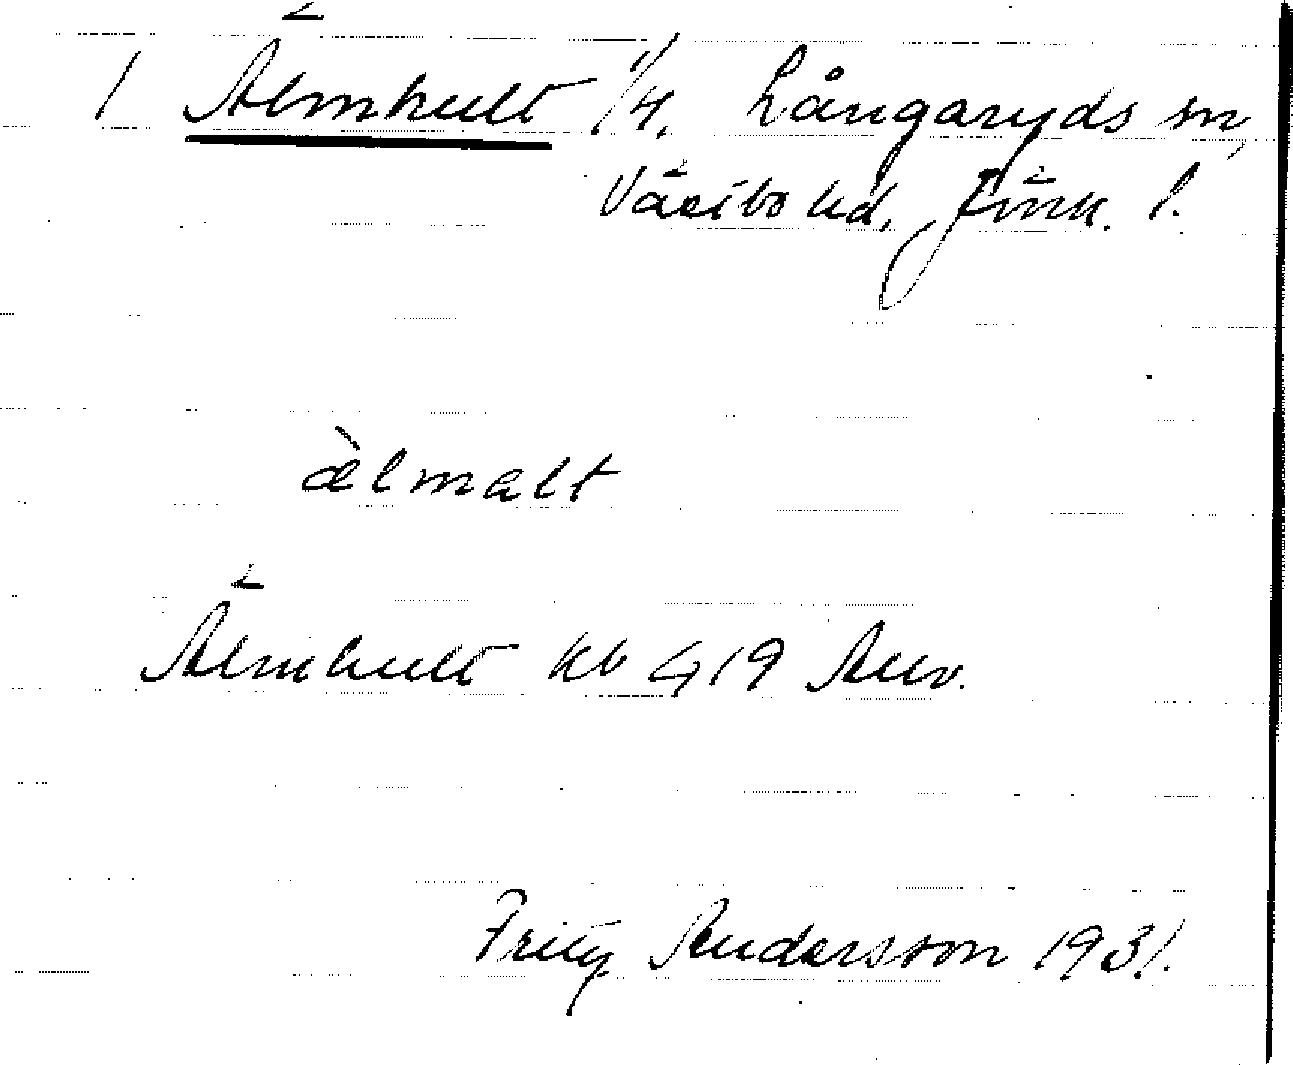 1 Älmhult 1/4. Långaryds sn,
Västbo hd, Jönk. l.
æ̀lmalt
Älmhult kb 419 Anv.
Fritz Andersson 1931.